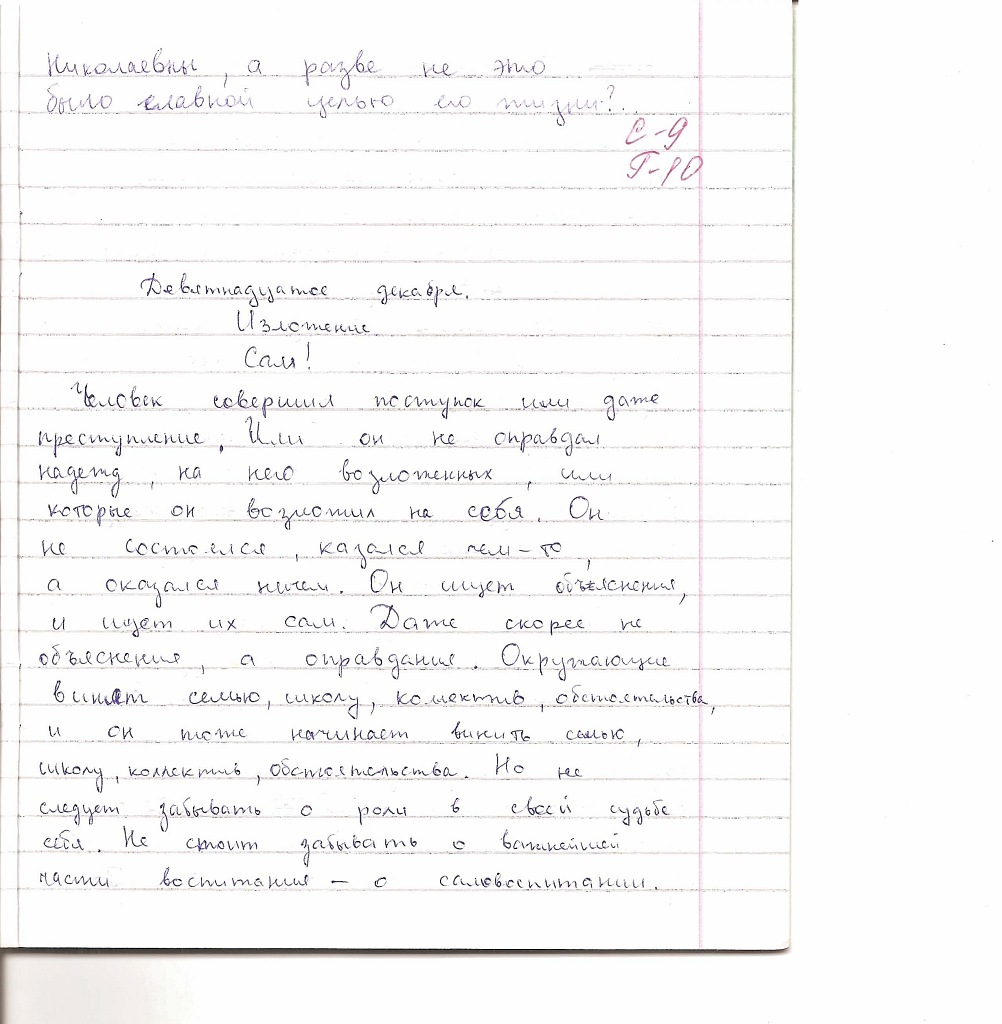 Николаевны, а разве не это
было славной целью его жизни?..
С-9
Г-10
Девятнадцатое декабря.
Изложение
Сам!
Человек совершил поступок или даже
преступление. Или он не оправдал
надежд, на него возложенных, или
которые он возложил на себя. Он
не состоялся, казался чем-то,
а оказался ничем. Он ищет объяснения,
и ищет их сам. Даже скорее не
объяснения, а оправдания. Окружающие
винят семью, школу, коллектив, обстоятельства,
и он тоже начинает винить семью,
школу, коллектив, обстоятельства. Но не
следует забывать о роли в своей судьбе
себя. Не стоит забывать о важнейшей
части воспитания – о самовоспитании.